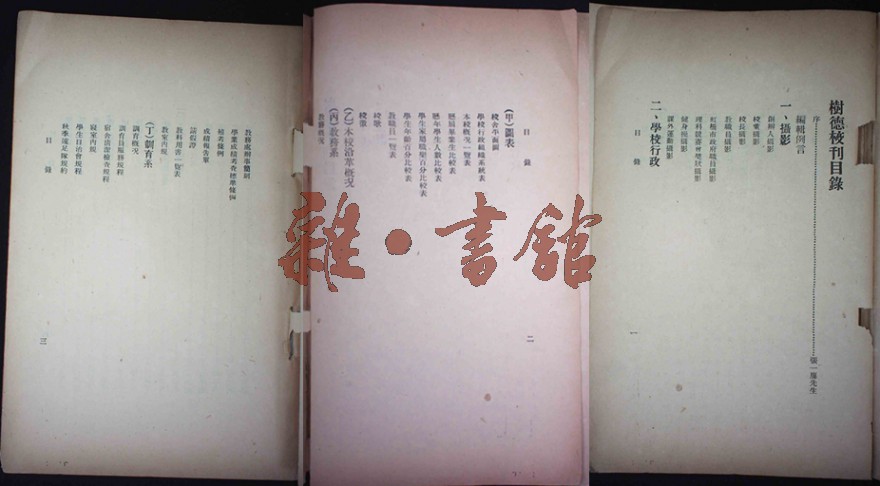 樹德校刊目錄
序……張一先生
編輯例言
一、攝影
創辦人攝影
校董攝影
校長攝影
教職員攝影
市政府職員攝影
理科攝影
健身組攝影
課外運動攝影
二、學校行政
目錄
一
目錄
(甲)圖表
校舍平面圖
學校行政組織系統表
本校概況一覽表
歷屆畢業生比較表
歷年學生人數比較表
學生家長職業百分比較表
學生年齡百分比較表
教職員一覽表
校歌
校徽
(乙)本校沿革概況
(丙)教務系
教務概況
二
教務處辦事簡則
學業成績考查標準
補考條例
成績報告單
請假證
教科用書一覽表
教室內規
(丁)訓育系
訓育概況
訓育員服務規程
宿舍清潔檢查規程
寢室內規
學生自治會規程
秋季遠足隊規約
目錄
三
雜·書館